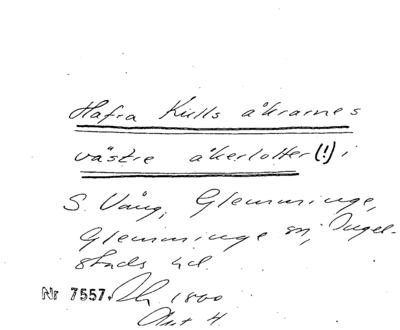 Hafra Kulls åkrarnes
västre åkerlotter (!) i
S. Vång, Glemminge,
Glemminge sn, Ingel-
stads hd.
Nr 7557. 1800
4